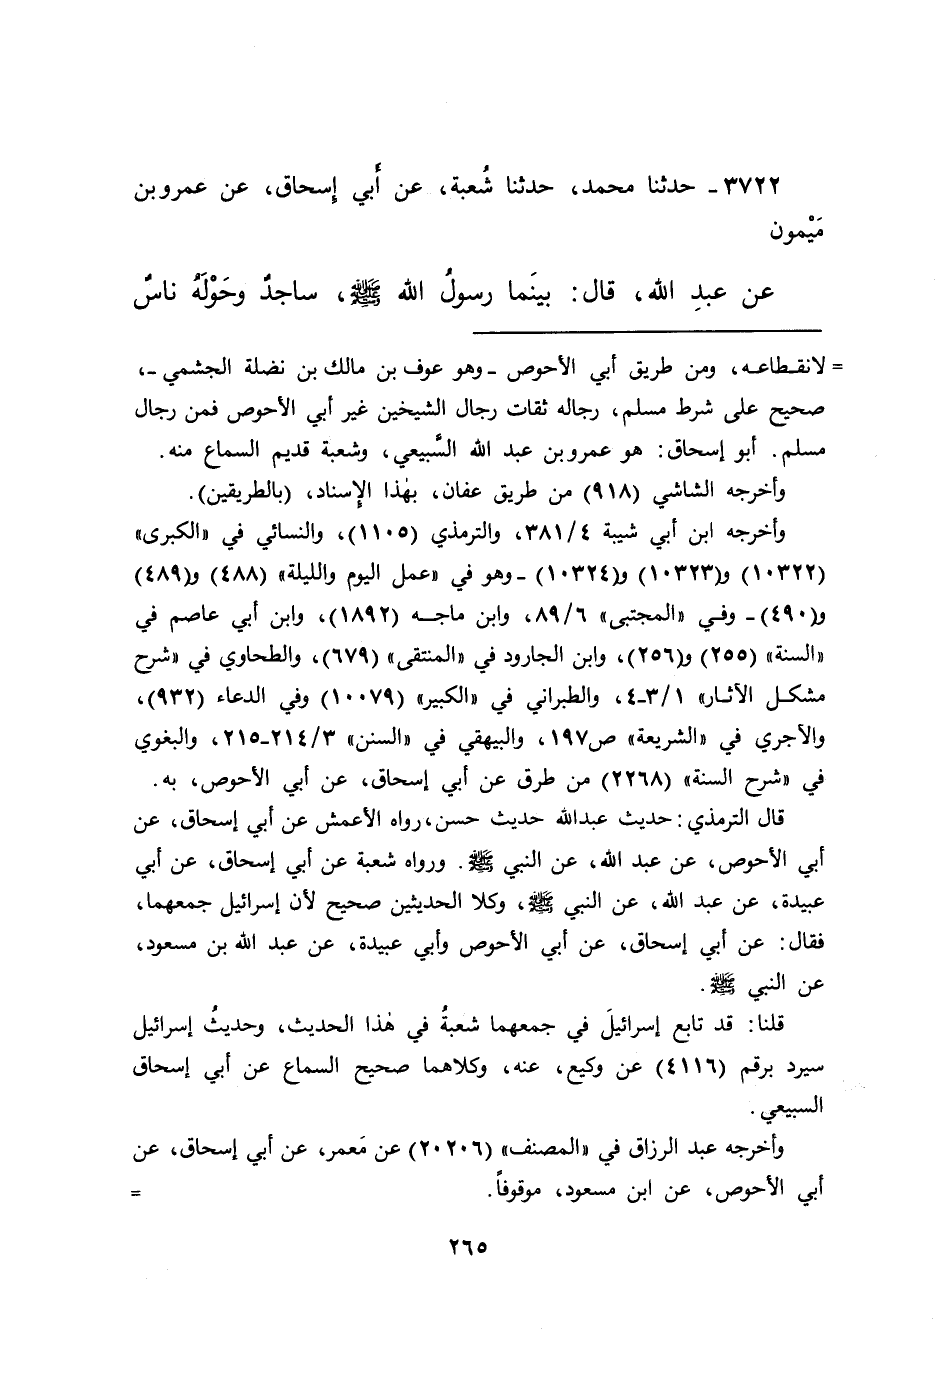 ٣٧٢٢ - حدثنا محمد، حدثنا شُعبة، عن أَبي إِسحاق، عن عمرو بن
مَيْمون
عن عبدِ الله، قال: بينَما رسولُ الله ﷺ، ساجدٌ وحَوْلَهُ ناسٌ
= لانقطاعه، ومن طريق أبي الأحوص - وهو عوف بن مالك بن نضلة الجشمي -،
صحيح على شرط مسلم، رجاله ثقات رجال الشيخين غير أبي الأحوص فمن رجال
مسلم. أبو إسحاق: هو عمرو بن عبد الله السَّبيعي، وشعبة قديم السماع منه.
وأخرجه الشاشي (٩١٨) من طريق عفان، بهٰذا الإِسناد، (بالطريقين).
وأخرجه ابن أبي شيبة ٣٨١/٤، والترمذي (١١٠٥)، والنسائي في «الكبرى»
(١٠٣٢٢) و(١٠٣٢٣) و(١٠٣٢٤) - وهو في «عمل اليوم والليلة» (٤٨٨) و(٤٨٩)
و(٤٩٠) - وفي «المجتبى» ٨٩/٦، وابن ماجه (١٨٩٢)، وابن أبي عاصم في
«السنة» (٢٥٥) و(٢٥٦)، وابن الجارود في «المنتقى» (٦٧٩)، والطحاوي في «شرح
مشكل الآثار» ٣/١-٤، والطبراني في «الكبير» (١٠٠٧٩) وفي الدعاء (٩٣٢)،
والآجري في «الشريعة» ص١٩٧، والبيهقي في «السنن» ٢١٤/٣-٢١٥، والبغوي
في «شرح السنة» (٢٢٦٨) من طرق عن أبي إسحاق، عن أبي الأحوص، به.
قال الترمذي: حديث عبدالله حديث حسن، رواه الأعمش عن أبي إسحاق، عن
أبي الأحوص، عن عبد الله، عن النبي ﷺ. ورواه شعبة عن أبي إسحاق، عن أبي
عبيدة، عن عبد الله، عن النبي ﷺ، وكلا الحديثين صحيح لأن إسرائيل جمعهما،
فقال: عن أبي إسحاق، عن أبي الأحوص وأبي عبيدة، عن عبد الله بن مسعود،
عن النبي ﷺ.
قلنا: قد تابع إسرائيلَ في جمعهما شعبةُ في هٰذا الحديث، وحديثُ إسرائيل
سيرد برقم (٤١١٦) عن وكيع، عنه، وكلاهما صحيح السماع عن أبي إسحاق
السبيعي.
وأخرجه عبد الرزاق في «المصنف» (٢٠٢٠٦) عن مَعمر، عن أبي إسحاق، عن
أبي الأحوص، عن ابن مسعود، موقوفاً. =
٢٦٥